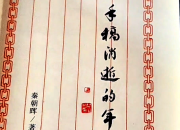 手稿消逝的年
秦朝晖/著